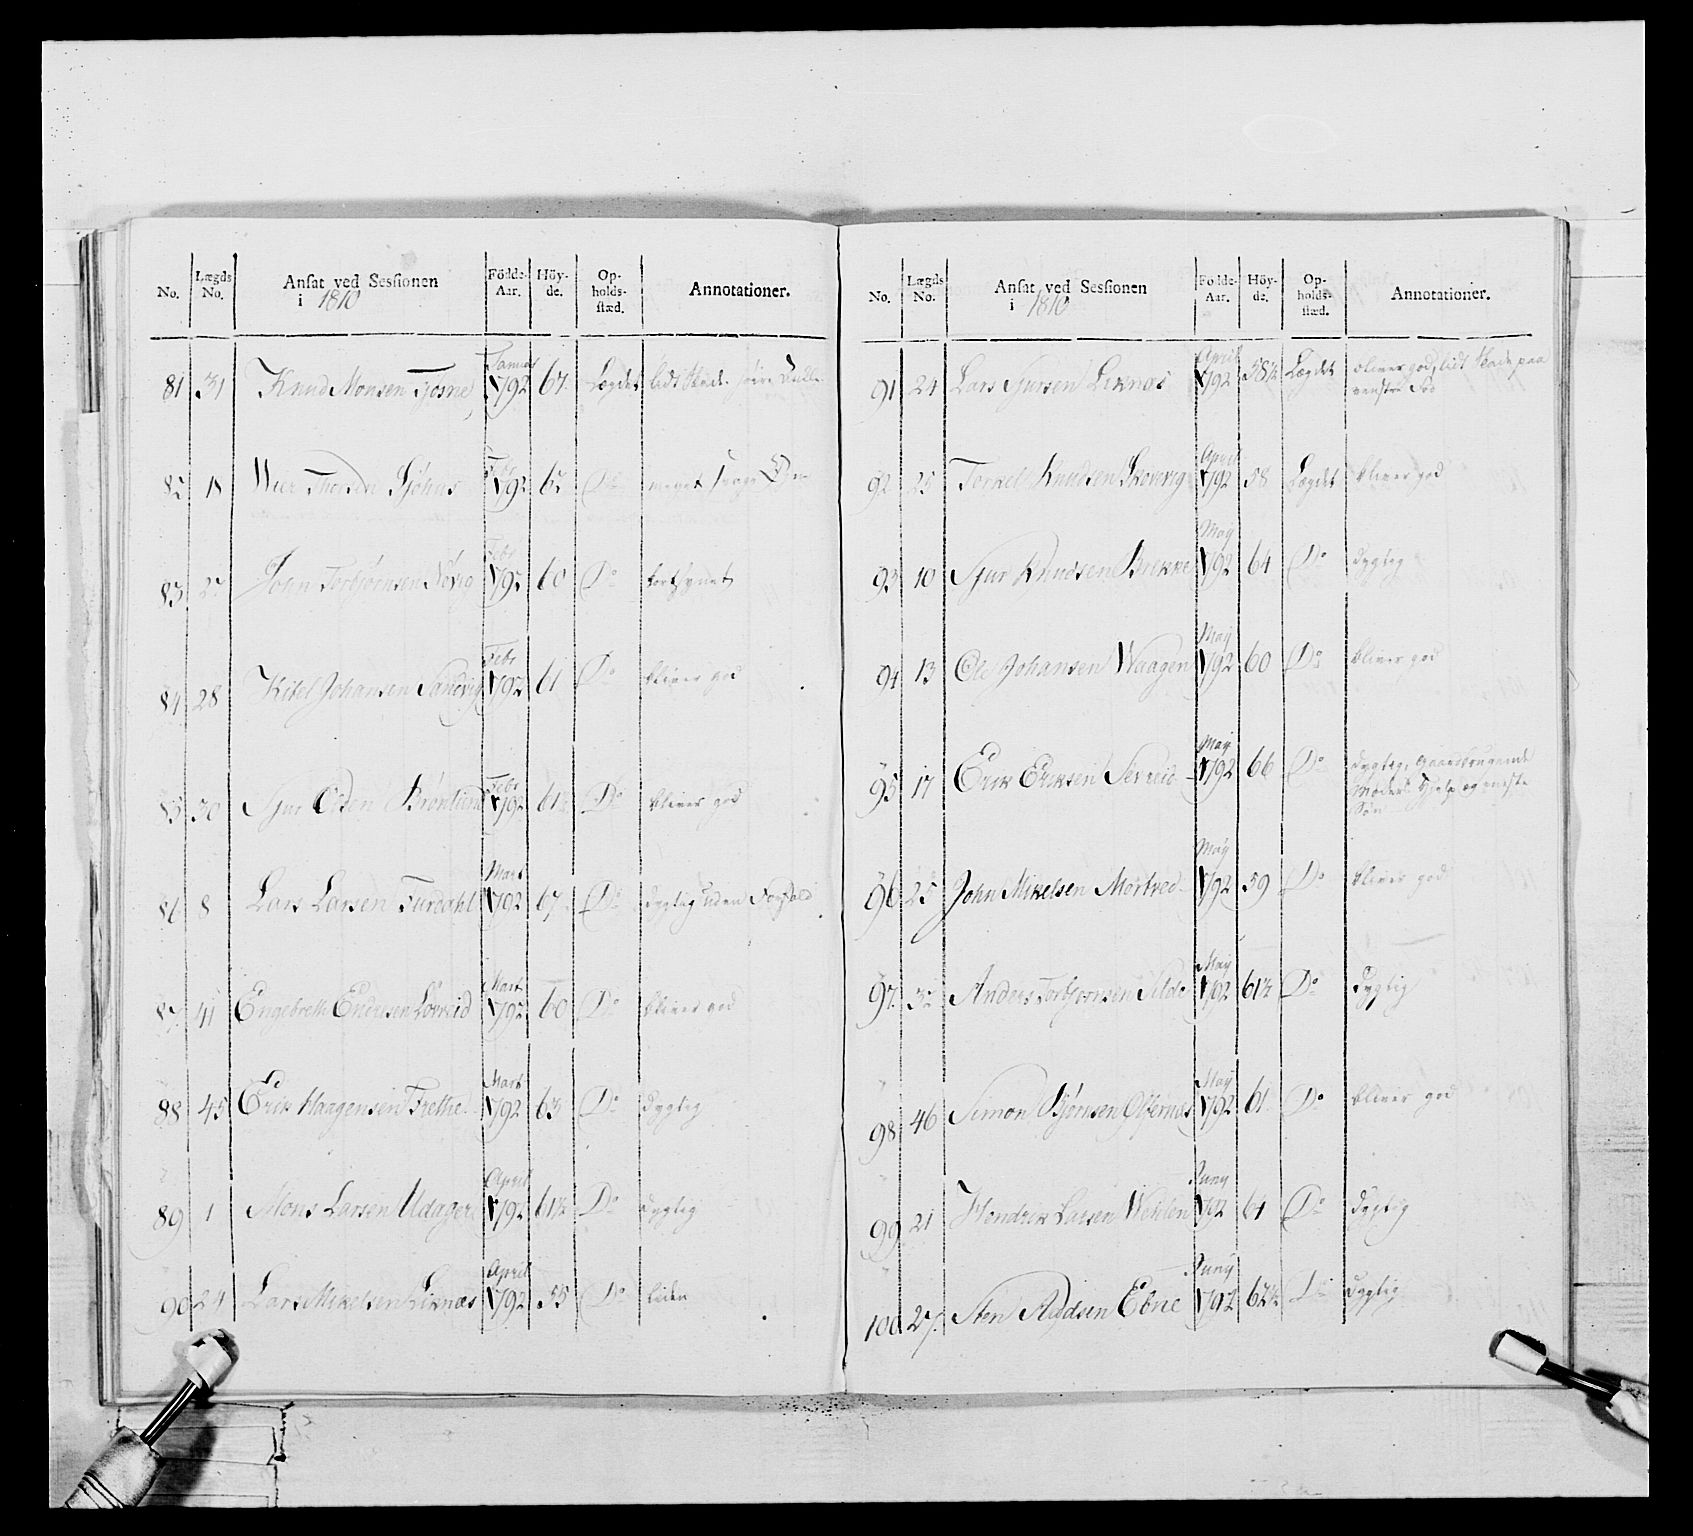 No. Lægds No. Ansat ved Sessionen i 1810 Födde-Aar. Höy-de. Op-holds-stæd. Annotationer.
81 31 Knud Monsen Tjosne Januar 1792 67 Lægdet lidt Skade
82 18 Thorsen Sjóhus Febr 1792 62 Do meget svage Øyne
83 27 John Torbjørnsen Febr 1792 60 Do kortsynet
84 28 Kitel Johansen Sandvig Febr 1792 61 Do bliver god
85 30 Sjur Olsen Brontund Febr 1792 61½ Do bliver god
86 8 Lars Larsen Furdahl Mart 1792 67 Do dygtig uden Forfald
87 41 Engebreth Endresen Løvreid Mart 1792 60 Do bliver god
88 45 Erik Haagensen Frette Mart 1792 63 Do dygtig
89 1 Mons Larsen Udager April 1792 61½ Do dygtig
90 24 Lars Mikelsen Liknæs April 1792 55 Do liden
No. Lægds No. Ansat ved Sessionen i 1810 Födde-Aar. Höy-de. Op-holds-stæd. Annotationer.
91 24 Lars Sjursen Liknæs April 1792 58½ Lægdet bliver god, lidt Skade paa
venstre Fod
92 25 Torkel Knudsen Skorvig April 1792 58 Lægdet bliver god
93 10 Sjur Knudsen Brekke May 1792 64 Do dygtig
94 13 Ole Johansen Waagen May 1792 60 Do bliver god
95 17 Erik Eriksen Sevreid May 1792 66 Do dygtig, Gaardbrugende
Moders Hjelp og eneste
Søn
96 25 John Mikelsen Mortved May 1792 59 Do bliver god
97 32 Anders Torbjørnsen Silde May 1792 61½ Do dygtig
98 46 Simon Bjørnsen May 1792 61 Do bliver god
99 21 Hendrik Larsen Wehlen Juny 1792 64 Do dygtig
100 27 Sten Ebne Juny 1792 62½ Do dygtig